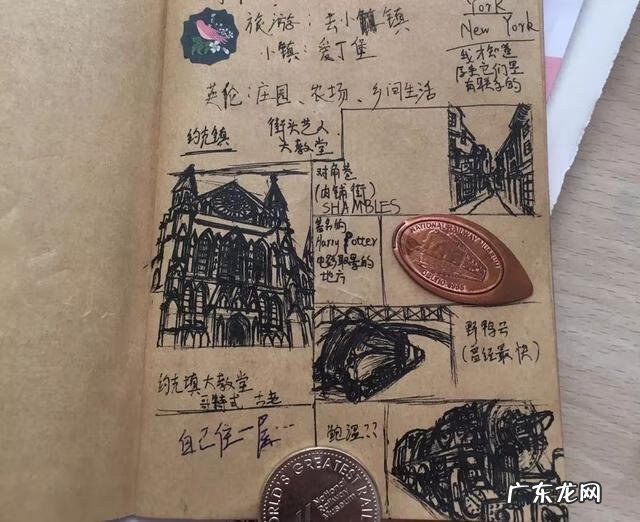 York
New York
我才知道
原来它们是
有联系的
旅游:去小镇
小镇:爱丁堡
英伦:庄园、农场、乡间生活
约克镇
街头艺人
大教堂
对角巷
(肉铺街)
SHAMBLES
著名的
Harry Potter
电影取景的
地方
NATIONAL RAILWAY MUSEUM
野鸭号
(曾经最快)
约克镇大教堂
哥特式 古老
自己住一层…
鲍温??
WORLD'S GREATEST RAIL
National
Railway
Museum
广东龙网